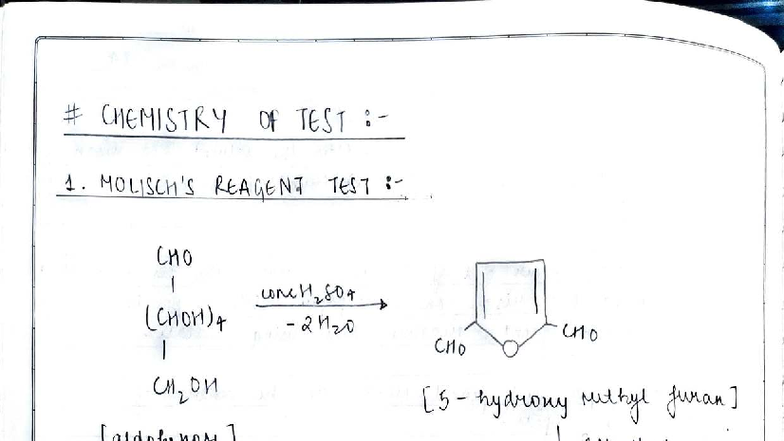 # CHEMISTRY OF TEST :-
1. MOLISCH'S REAGENT TEST :-
CHO
(CHOH)4
CH2OH
conc H2SO4
-2H2O
CHO
O
CHO
[5-hydroxy methyl furan]
[aldohexose]